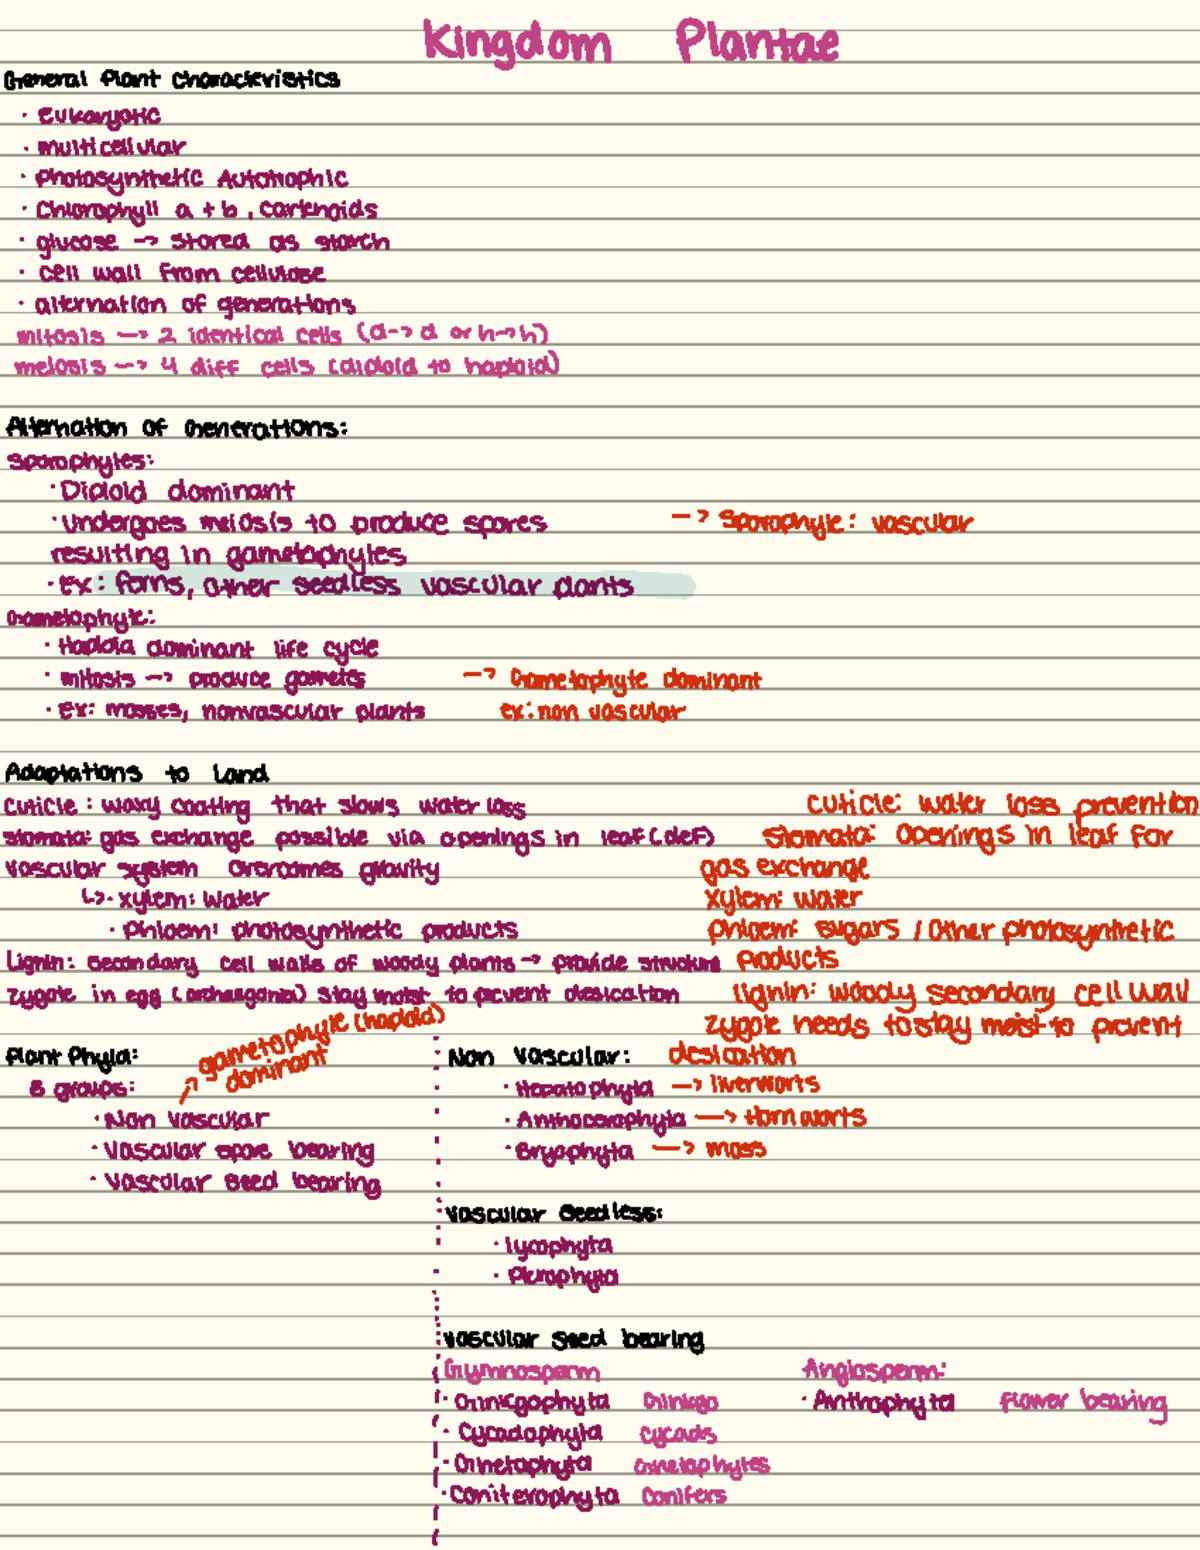 Kingdom Plantae
General Plant Characteristics
· Eukaryotic
· multicellular
· Photosynthetic Autotrophic
· Chlorophyll a + b , cartenoids
· glucose -> stored as starch
· cell wall from cellulose
· alternation of generations
mitosis -> 2 identical cells (d-> d or h->h)
meiosis -> 4 diff cells (diploid to haploid)
Alternation of Generations:
Sporophytes:
· Diploid dominant
· undergoes meiosis to produce spores -> Sporophyte: vascular
resulting in gametophytes
· ex: ferns, other seedless vascular plants
Gametophyte:
· Haploid dominant life cycle
· mitosis -> produce gametes -> Gametophyte dominant
· ex: mosses, nonvascular plants ex: non vascular
Adaptations to Land
cuticle: waxy coating that slows water loss cuticle: water loss prevention
stomata: gas exchange possible via openings in leaf (def) stomata: openings in leaf for
vascular system overcomes gravity gas exchange
↳· xylem: water xylem: water
· Phloem: photosynthetic products phloem: sugars / other photosynthetic
Lignin: secondary cell walls of woody plants -> provide structure products
zygote in egg (archegonia) stay moist to prevent desication lignin: woody secondary cell wall
zygote needs to stay moist to prevent
desication
Plant Phyla:
8 groups: -> gametophyte (haploid)
dominant
· Non Vascular
· Vascular spore bearing
· Vascular seed bearing
Non Vascular:
· Hepatophyta -> liverworts
· Anthocerophyta -> Hornworts
· Bryophyta -> moss
Vascular Seedless:
· lycophyta
· Pterophyta
Vascular seed bearing
Gymnosperm Angiosperm:
· Ginkgophyta Ginkgo · Anthophyta flower bearing
· Cycadophyta cycads
· Gnetophyta Gnetophytes
· Coniferophyta Conifers